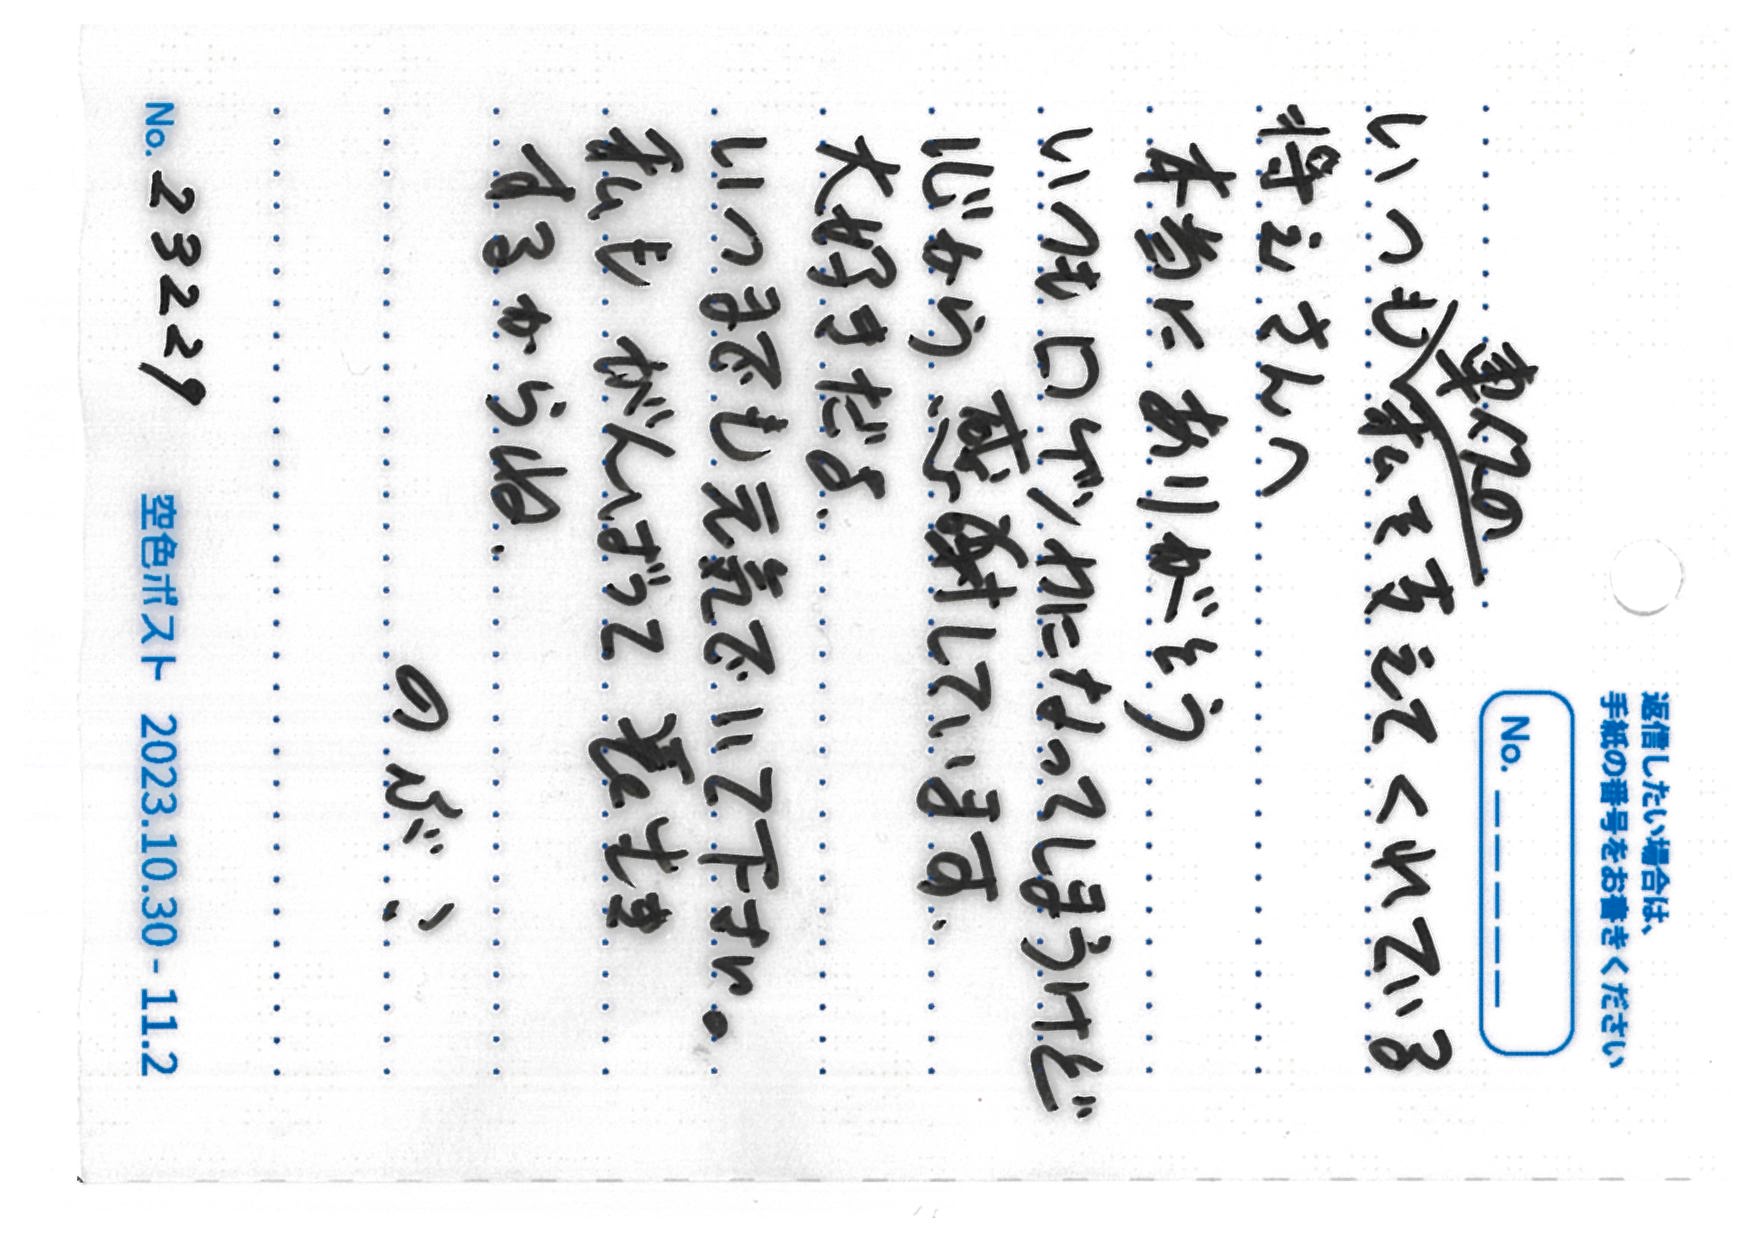 返信したい場合は、
手紙の番号をお書きください
No. _ _ _ _ _
車イスの
いつも私を支えてくれている
将之さんへ
本当に ありがとう
いつも口ゲンカになってしまうけど
心から感謝しています、
大好きだよ、
いつまでも元気でいて下さい。
私も がんばって 長生き
するからね、
のぶこ
No. 23229
空色ポスト 2023.10.30 - 11.2